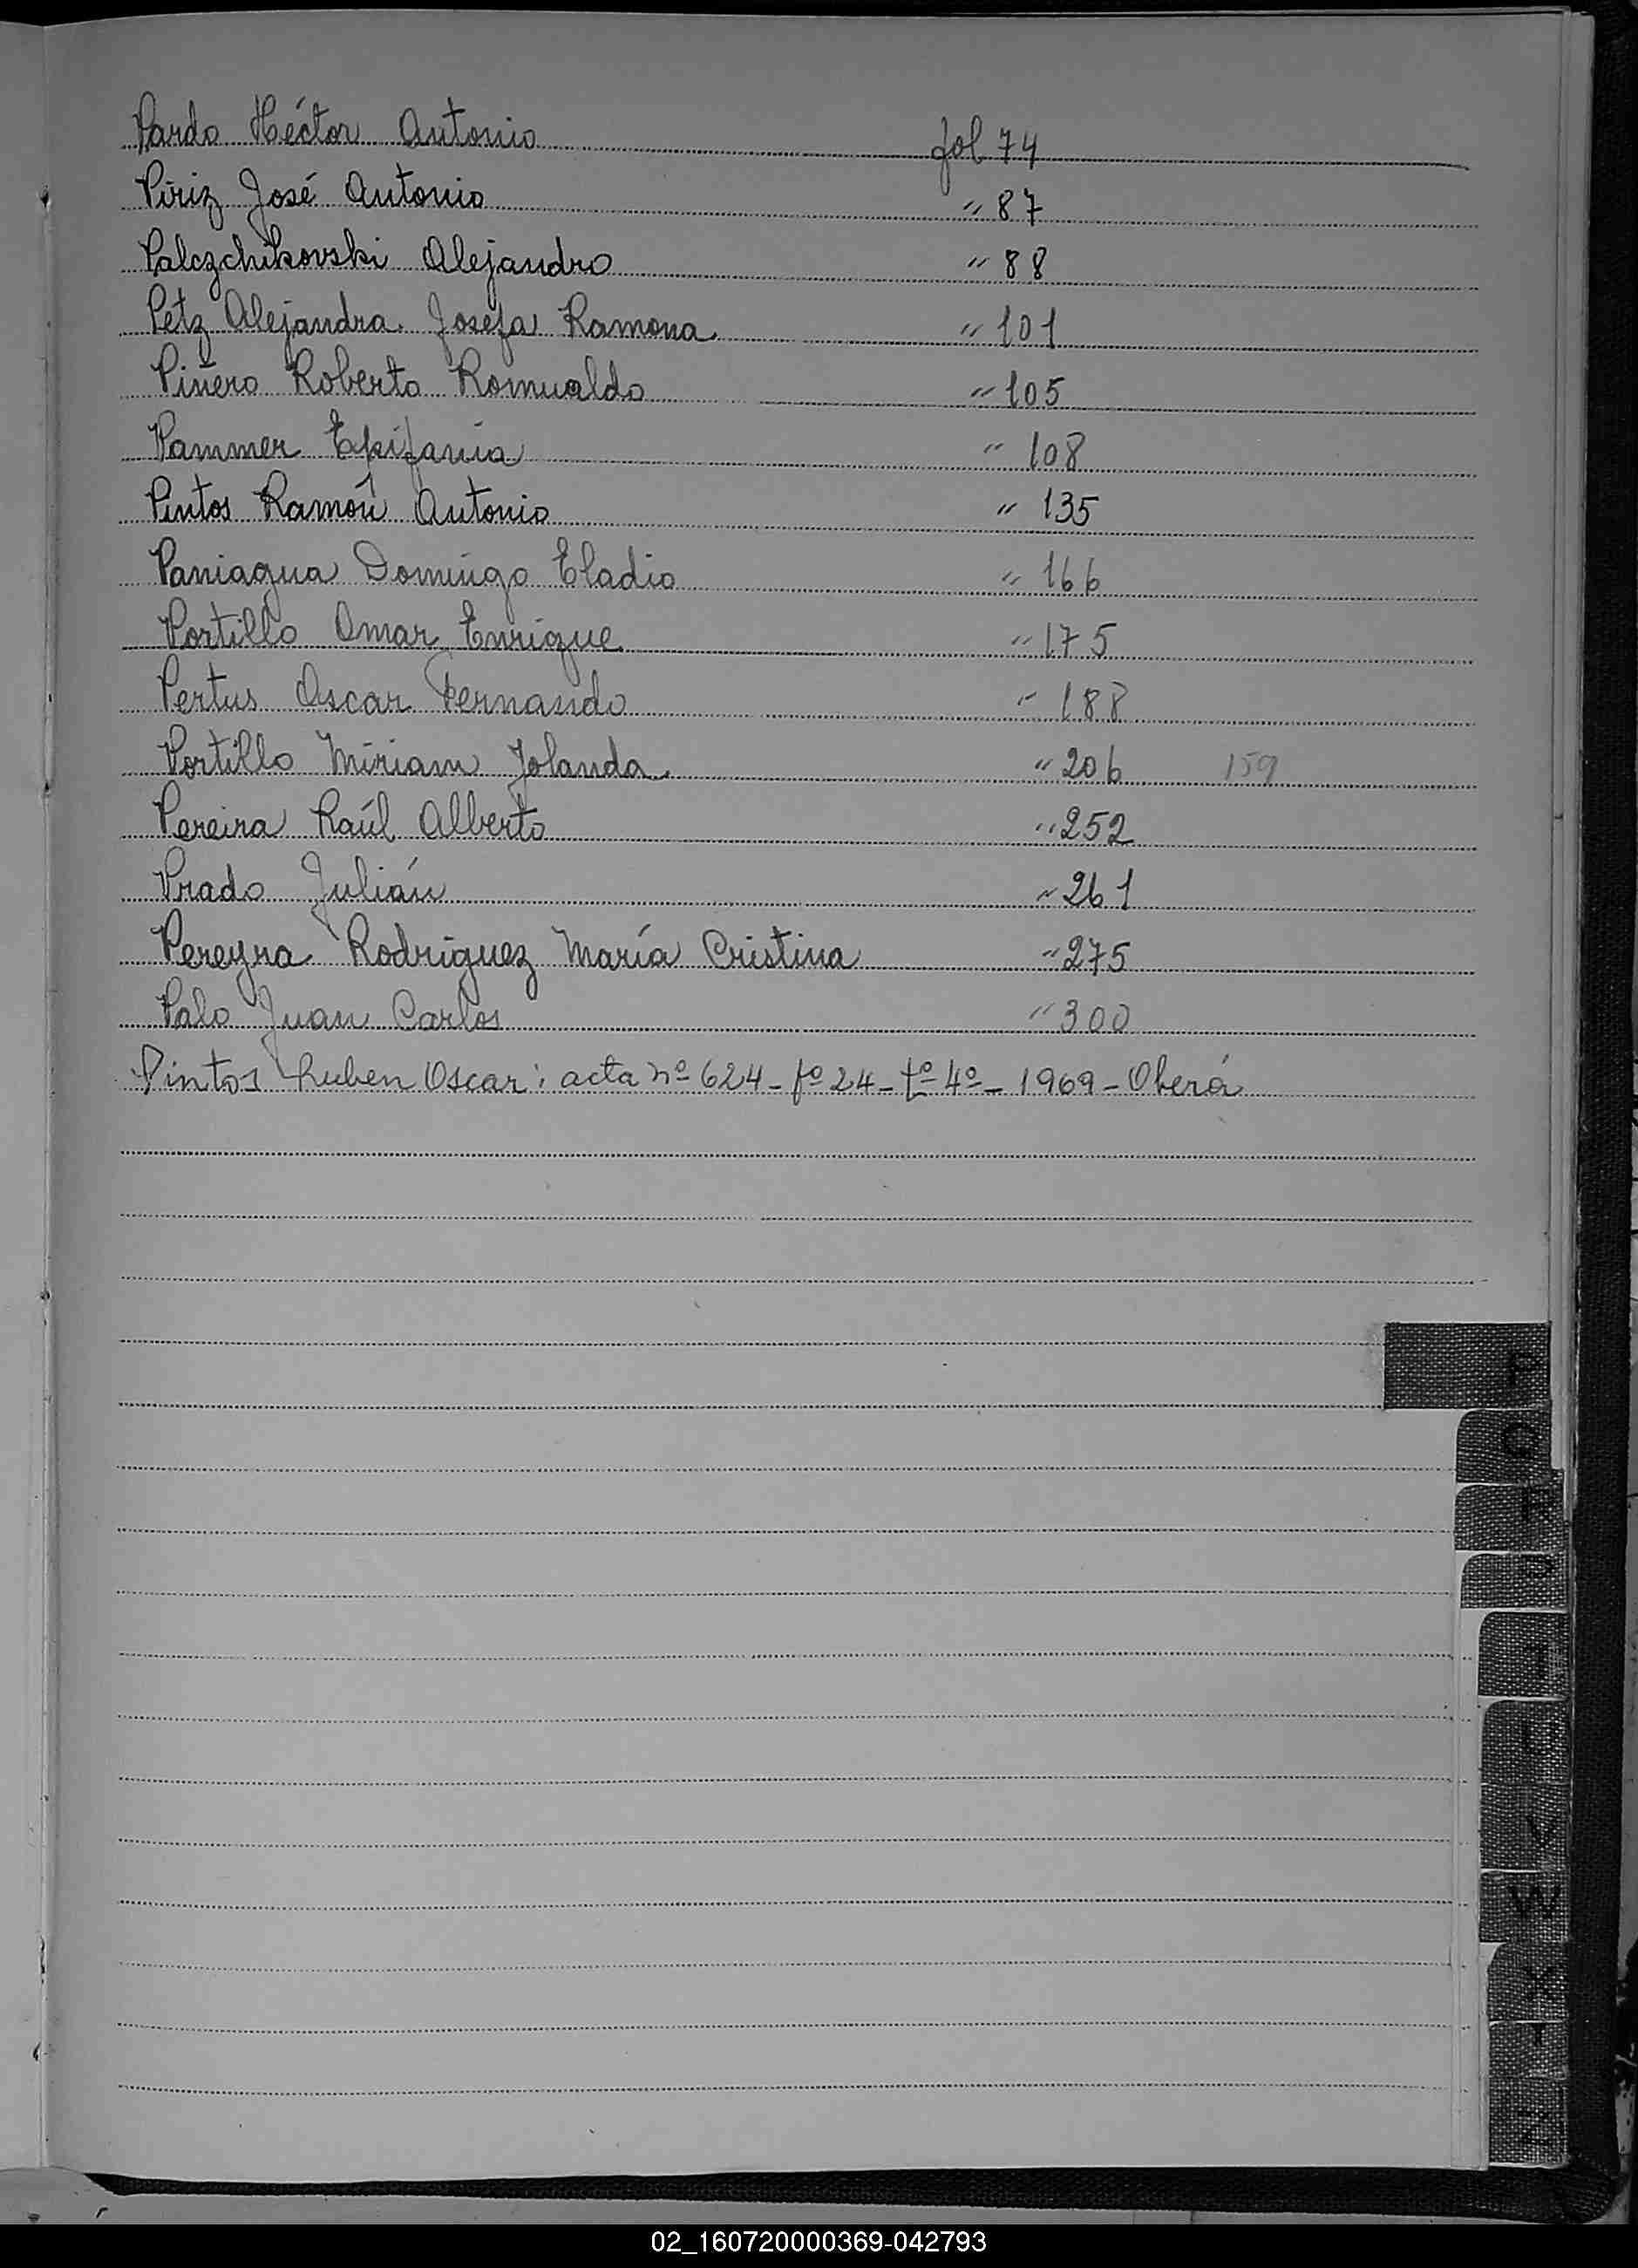 Pardo Héctor Antonio fol 74
Píriz José Antonio " 87
Palczchikovski Alejandro " 88
Petz Alejandra Josefa Ramona " 101
Piñero Roberto Romualdo " 105
Pammer Epifania " 108
Pintos Ramón Antonio " 135
Paniagua Domingo Eladio " 166
Portillo Omar Enrique " 175
Pertus Oscar Fernando " 188
Portillo Míriam Yolanda " 206 159
Pereira Raúl Alberto " 252
Prado Julián " 261
Pereyra Rodríguez María Cristina " 275
Palo Juan Carlos " 300
Pintos Ruben Oscar: acta nº 624 - fº 24 - tº 4º - 1969 - Oberá
P
Q
R
S
T
U
V
W
X
Y
Z
02_160720000369-042793